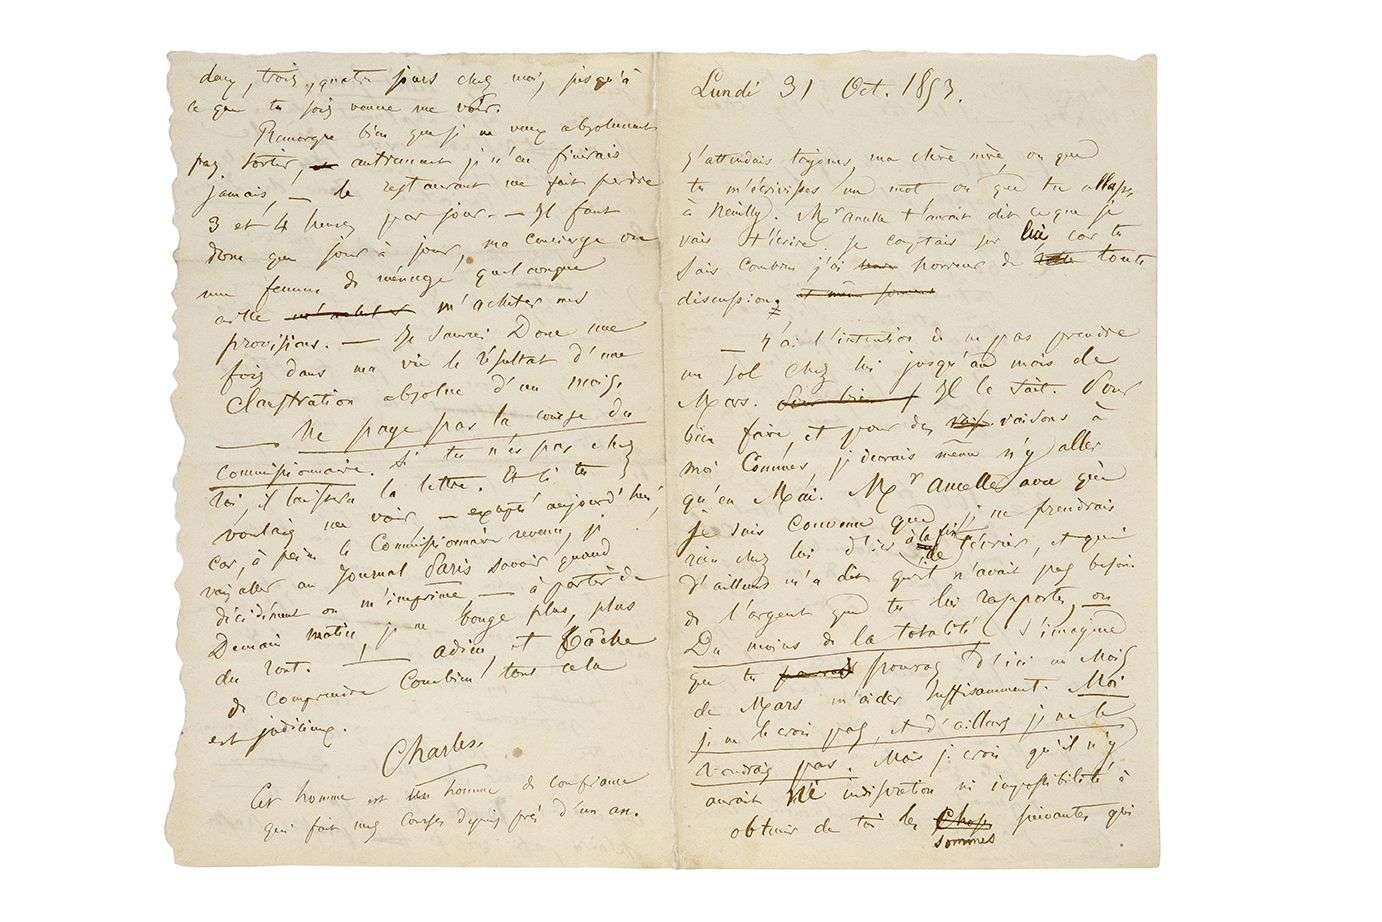 Lundi 31 Oct. 1853.
J'attendais toujours, ma chère mère ou que
tu m'écrivisses un mot ou que tu allasses
à Neuilly. Mr Ancelle t'aurait dit ce que je
vais t'écrire. Je comptais sur lui car tu
sais combien j'ai horreur de toute
discussion;
— J'ai l'intention de ne pas prendre
un sol chez lui jusqu'au mois de
Mars. Il le sait. Pour
bien faire, et pour des raisons à
moi connues, je devrais même n'y aller
qu'en Mai. Mr Ancelle avec qui
je suis convenu que je ne prendrais
rien chez lui d'ici à la fin de février, et qui
d'ailleurs m'a dit qu'il n'avait pas besoin
de l'argent que tu lui rapportes, ou
Du moins de la totalité s'imagine
que tu pourras d'ici au Mois
de Mars m'aider suffisamment. Moi
je ne le crois pas, et d'ailleurs je ne le
voudrais pas. Mais je crois qu'il n'y
aurait ni indiscrétion ni impossibilité à
obtenir de toi les Choses suivantes qui
sommes
deux, trois, quatre jours chez moi, jusqu'à
ce que tu sois venue me voir.
Remarque bien que je ne veux absolument
pas sortir, autrement je n'en finirais
jamais, — le restaurant me fait perdre
3 et 4 heures par jour. — Il faut
donc que jour à jour, ma concierge ou
une femme de ménage quelconque
aille m'acheter m'acheter mes
provisions. — Je saurai Donc une
fois dans ma vie le résultat d'une
Claustration absolue d'un mois.
— Ne paye pas la course du
commissionnaire. Si tu n'es pas chez
toi, il laissera la lettre. Et si tu
voulais me voir, — excepté aujourd'hui,
car, à peine le Commissionnaire revenu, je
vais aller au Journal Paris savoir quand
décidément on m'imprime, — à partir de
Demain matin, je ne bouge plus, plus
du tout. — adieu, et tâche
de comprendre Combien tout cela
est judicieux.
Charles.
Cet homme est un homme de confiance
qui fait mes courses depuis près d'un an.